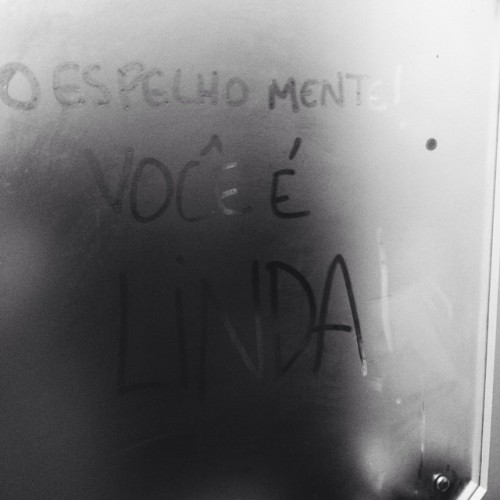 O ESPELHO MENTE!
VOCÊ É
LINDA!